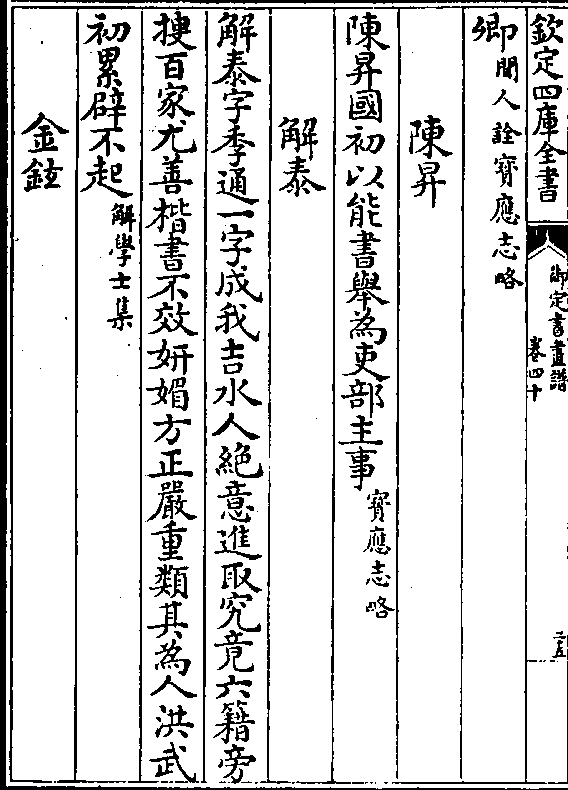 欽定四庫全書
御定書畫譜
卷四十
三五
卿聞人詮寶應志略
陳昇
陳昇國初以能書舉為吏部主事寶應志略
解泰
解泰字季通一字成我吉水人絶意進取究竟六籍旁
搜百家尤善楷書不效妍媚方正嚴重類其為人洪武
初累辟不起解學士集
金鉉